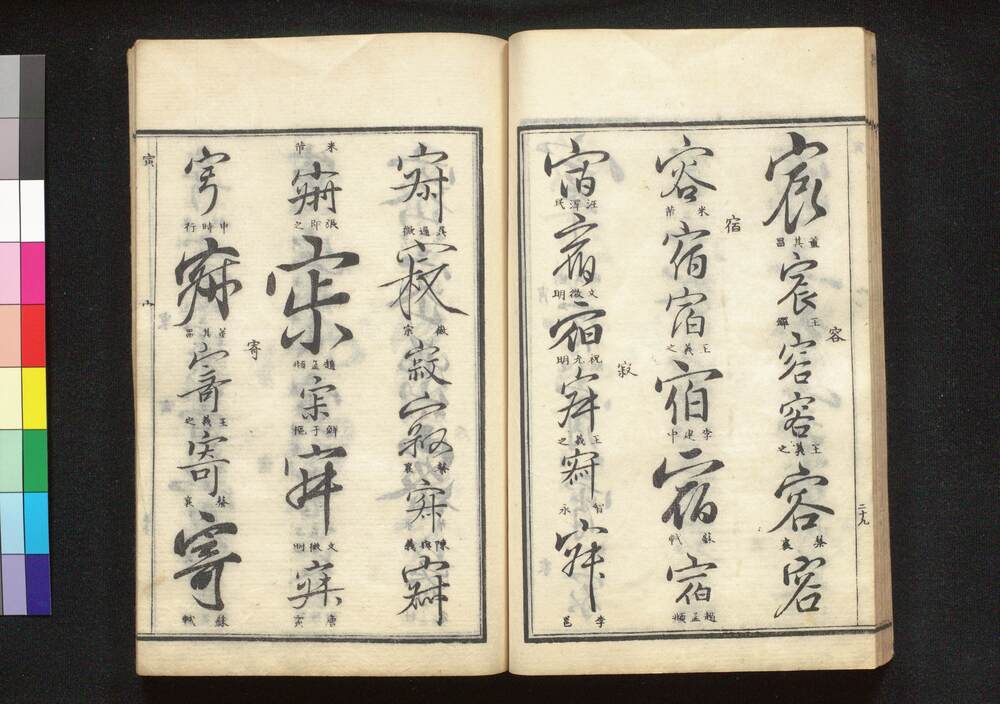 宸 董其昌
宸 王鐸
容
容 容 王羲之
容 蔡襄
容 米芾
容
宿
宿 宿 王羲之
宿 李建中
宿 蘇軾
宿 趙孟頫
宿 汪澤民
宿 文徵明
宿 祝允明
寂
寂 王羲之
寂 智永
寂 李邕
二十九
寂 吳通微
寂 徽宗
寂 寂 蔡襄
寂 陳與義
寂 米芾
寂 張即之
寂 趙孟頫
寂 鮮于樞
寂 文徵明
寂 唐寅
寂 申時行
寂 董其昌
寄
寄 王羲之
寄 蔡襄
寄 蘇軾
寅
宀